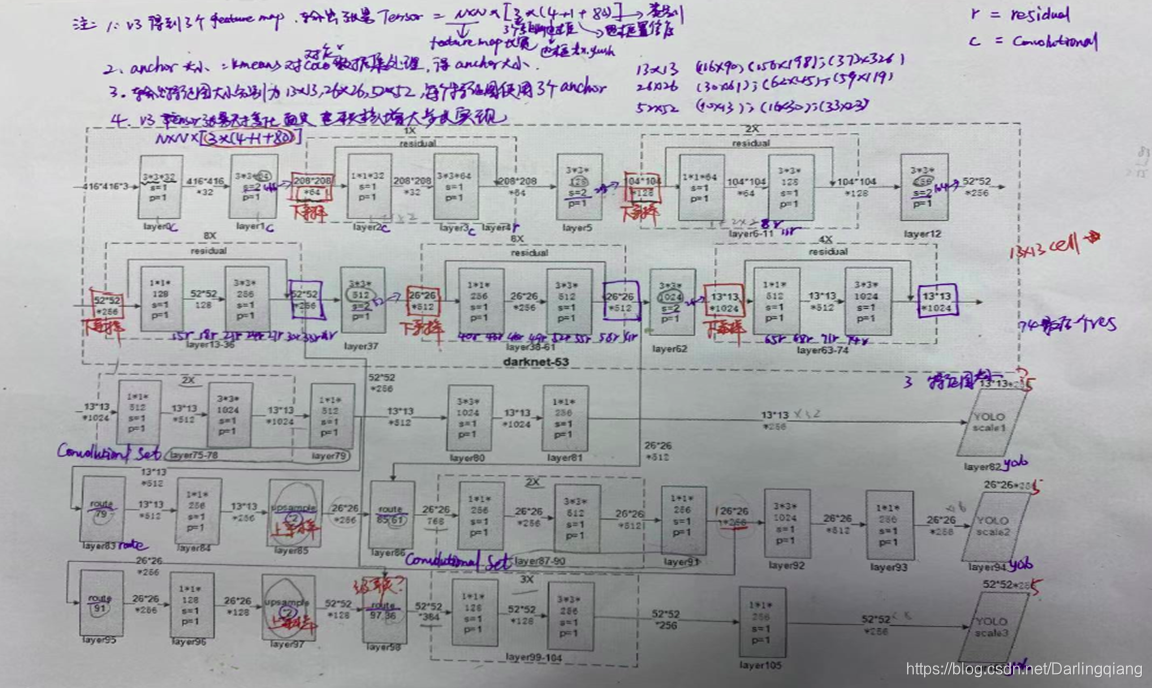 注: 1. v3 得到3个 feature map, 输出张量 Tensor = N×N×[3×(4+1+80)] → 类别
feature map
r = residual
c = Convolutional
2. anchor 大小 = kmeans 对coco 数据集处理, 得 anchor大小.
13×13
26×26 (30×61); (62×45); (59×119)
3. 输出特征图大小分别为 13×13, 26×26, 52×52, 每个特征图使用3个anchor
52×52
4. v3
N×N×[3×(4+1+80)]
1X
2X
residual
residual
416*416*3
3*3*32 s=1 p=1
416*416 *32
3*3* s=2 p=1
208*208 *64
1*1*32 s=1 p=1
208*208 *32
3*3*64 s=1 p=1
208*208 *64
3*3* 128 s=2 p=1
104*104 *128
1*1*64 s=1 p=1
104*104 *64
3*3* 128 s=1 p=1
104*104 *128
3*3* 256 s=2 p=1
52*52 *256
下采样
下采样
layer0c
layer1c
layer2c
layer3c
layer4r
layer5
layer6-11
layer12
13×13 cell
8X
8X
4X
residual
residual
residual
52*52 *256
1*1* 128 s=1 p=1
52*52 128
3*3* 256 s=1 p=1
52*52 *256
3*3* 512 s=2 p=1
26*26 *512
1*1* 256 s=1 p=1
26*26 *256
3*3* 512 s=1 p=1
26*26 *512
3*3* 1024 s=2 p=1
13*13 *1024
1*1* 512 s=1 p=1
13*13 *512
3*3* 1024 s=1 p=1
13*13 *1024
下采样
下采样
下采样
layer13-36
layer37
layer38-61
layer62
layer63-74
darknet-53
2X
52*52 *256
13*13 *1024
1*1* 512 s=1 p=1
13*13 *512
3*3* 1024 s=1 p=1
13*13 *1024
1*1* 512 s=1 p=1
13*13 *512
3*3* 1024 s=1 p=1
13*13 *1024
1*1* 256 s=1 p=1
13*13 *256
YOLO scale1
Convolutional Set
layer75-78
layer79
layer80
layer81
layer82 yolo
26*26 *512
13*13 *512
2X
route 79
13*13 *512
1*1* 256 s=1 p=1
13*13 *256
upsample *2 上采样
26*26 *256
route 85,61
26*26 768
1*1* 256 s=1 p=1
26*26 *256
3*3* 512 s=1 p=1
26*26 *512
1*1* 256 s=1 p=1
26*26 *256
3*3* 1024 s=1 p=1
26*26 *512
1*1* 256 s=1 p=1
26*26 *256
YOLO scale2
layer83 route
layer84
layer85
layer86
layer87-90
layer91
layer92
layer93
layer94 yolo
Convolutional Set
26*26 *256
3X
route 91
26*26 *256
1*1* 128 s=1 p=1
26*26 *128
upsample *2 上采样
52*52 *128
route 97,36
52*52 *384
1*1* 128 s=1 p=1
52*52 *128
3*3* 256 s=1 p=1
52*52 *256
1*1* 256 s=1 p=1
52*52 *256
YOLO scale3
layer95
layer96
layer97
layer98
layer99-104
layer105
yolo
https://blog.csdn.net/Darlingqiang